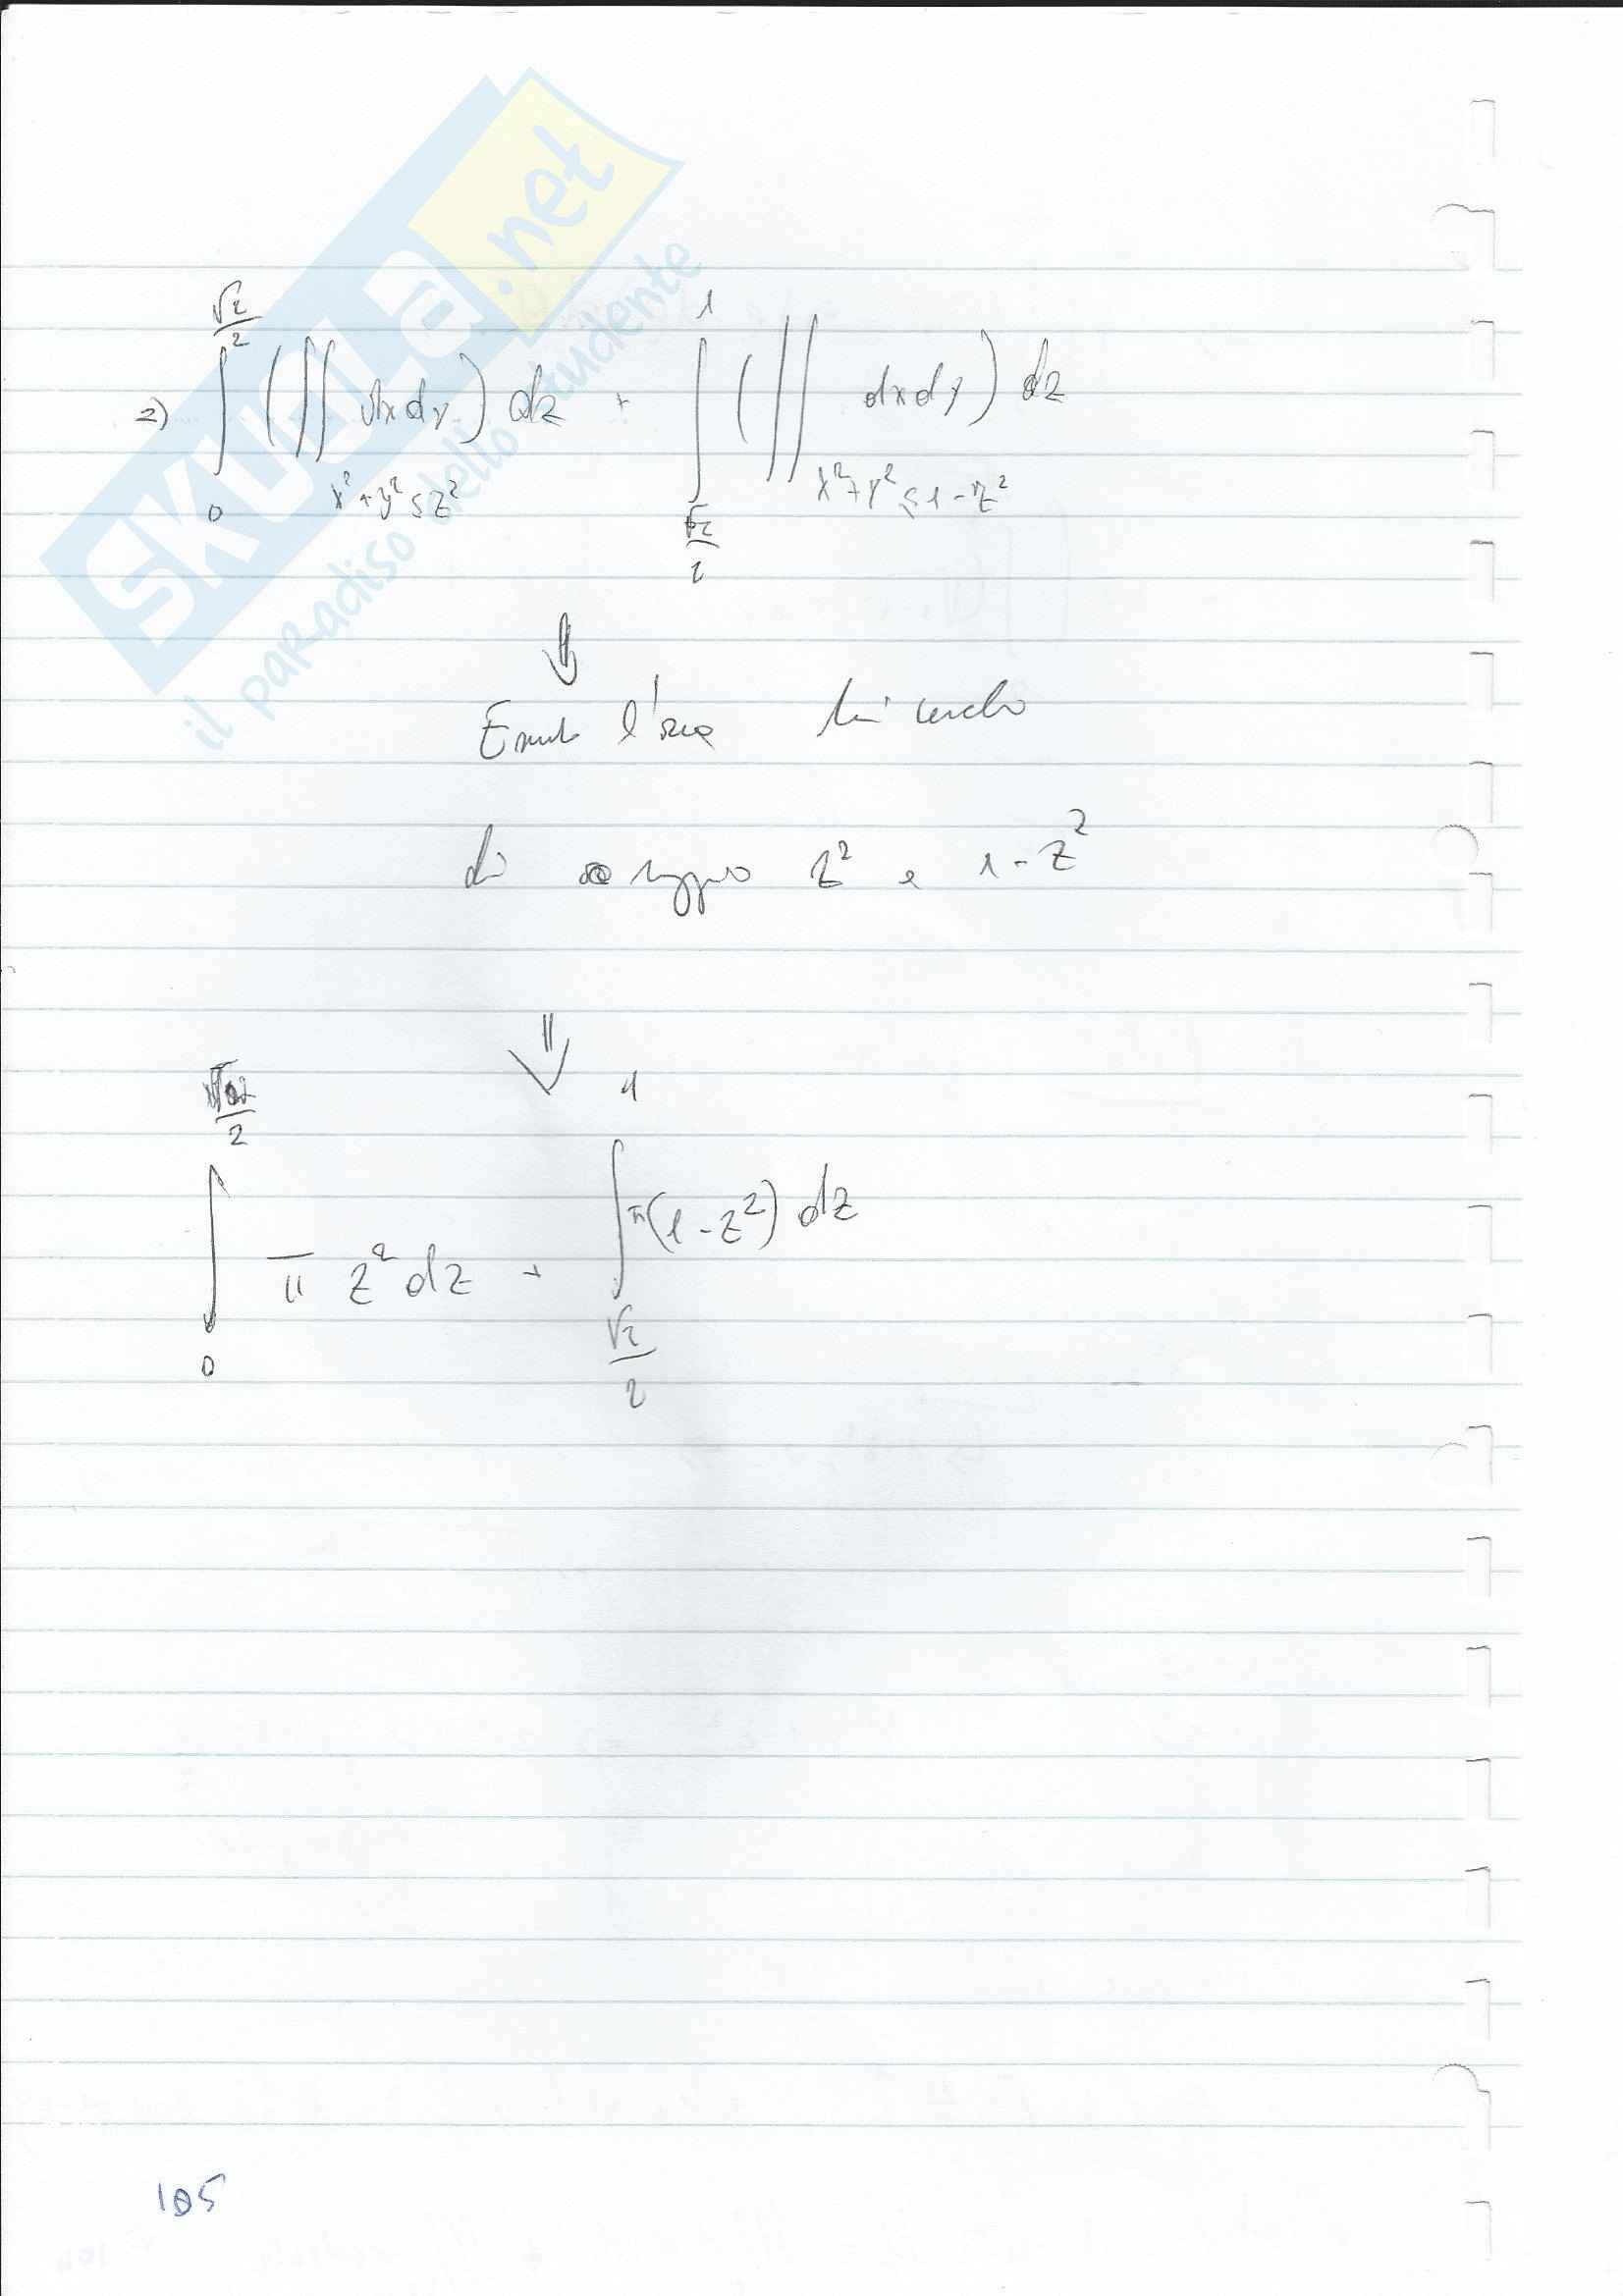 SKUOLA.net
il paradiso dello studente
2) ∫_0^{√2/2} (∬_{x²+y²≤z²} dxdy) dz + ∫_{√2/2}^1 (∬_{x²+y²≤1-z²} dxdy) dz
⇓
l'area cerchi
di raggio z² e 1-z²
⇓
∫_0^{√2/2} π z² dz + ∫_{√2/2}^1 π(1-z²) dz
105